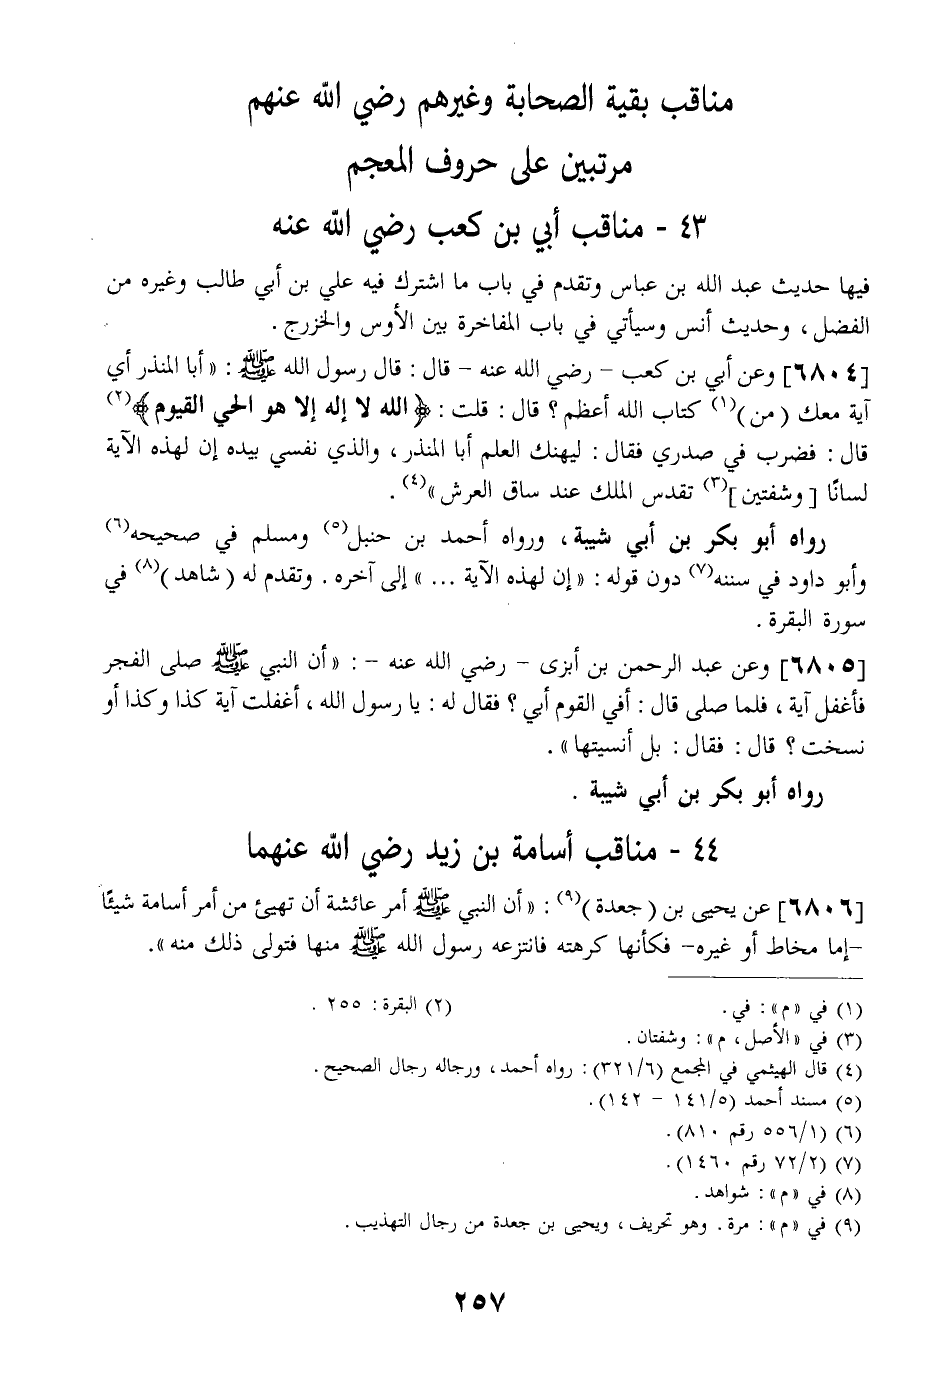 مناقب بقية الصحابة وغيرهم رضي الله عنهم
مرتبين على حروف المعجم
٤٣ - مناقب أبي بن كعب رضي الله عنه
فيها حديث عبد الله بن عباس وتقدم في باب ما اشترك فيه علي بن أبي طالب وغيره من
الفضل، وحديث أنس وسيأتي في باب المفاخرة بين الأوس والخزرج.
[٦٨٠٤] وعن أبي بن كعب - رضي الله عنه - قال: قال رسول الله ﷺ: «أبا المنذر أي
آية معك (من)(١) كتاب الله أعظم؟ قال: قلت: ﴿الله لا إله إلا هو الحي القيوم﴾(٢)
قال: فضرب في صدري فقال: ليهنك العلم أبا المنذر، والذي نفسي بيده إن لهذه الآية
لسانًا [وشفتين](٣) تقدس الملك عند ساق العرش»(٤).
رواه أبو بكر بن أبي شيبة، ورواه أحمد بن حنبل(٥) ومسلم في صحيحه(٦)
وأبو داود في سننه(٧) دون قوله: «إن لهذه الآية ...» إلى آخره. وتقدم له (شاهد)(٨) في
سورة البقرة.
[٦٨٠٥] وعن عبد الرحمن بن أبزى - رضي الله عنه -: «أن النبي ﷺ صلى الفجر
فأغفل آية، فلما صلى قال: أفي القوم أبي؟ فقال له: يا رسول الله، أغفلت آية كذا وكذا أو
نسخت؟ قال: فقال: بل أنسيتها».
رواه أبو بكر بن أبي شيبة.
٤٤ - مناقب أسامة بن زيد رضي الله عنهما
[٦٨٠٦] عن يحيى بن (جعدة)(٩): «أن النبي ﷺ أمر عائشة أن تهيئ من أمر أسامة شيئًا
-إما مخاط أو غيره- فكأنها كرهته فانتزعه رسول الله ﷺ منها فتولى ذلك منه».
(١) في «م»: في. (٢) البقرة: ٢٥٥.
(٣) في «الأصل، م»: وشفتان.
(٤) قال الهيثمي في المجمع (٣٢١/٦): رواه أحمد، ورجاله رجال الصحيح.
(٥) مسند أحمد (١٤١/٥ - ١٤٢).
(٦) (٥٥٦/١ رقم ٨١٠).
(٧) (٧٢/٢ رقم ١٤٦٠).
(٨) في «م»: شواهد.
(٩) في «م»: مرة. وهو تحريف، ويحيى بن جعدة من رجال التهذيب.
٢٥٧